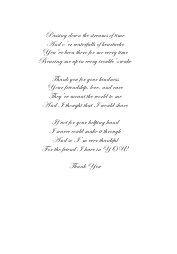 Passing down the streams of time
And o'er waterfalls of heartache
You've been there for me every time
Bearing me up in every trouble's wake
Thank you for your kindness
Your friendship, love, and care
They've meant the world to me
And I thought that I would share
If not for your helping hand
I never could make it through
And so I'm ever thankful
For the friend I have in YOU!
Thank You